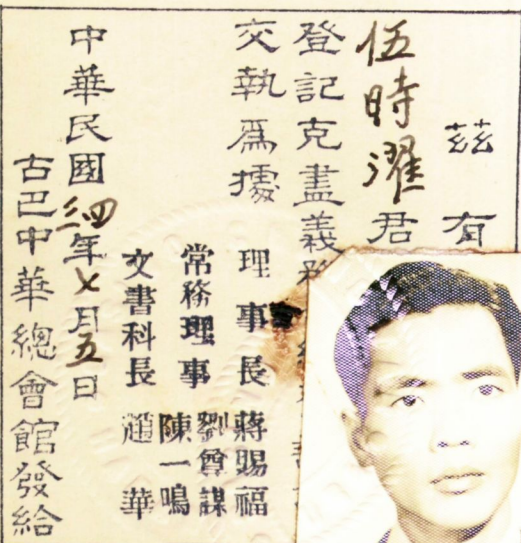 茲有
伍時濯君
登記克盡義務
交執爲據
理事長 蔣賜福
常務理事 劉曾謀
陳一鳴
文書科長 趙華
中華民國三四年七月五日
古巴中華總會館發給